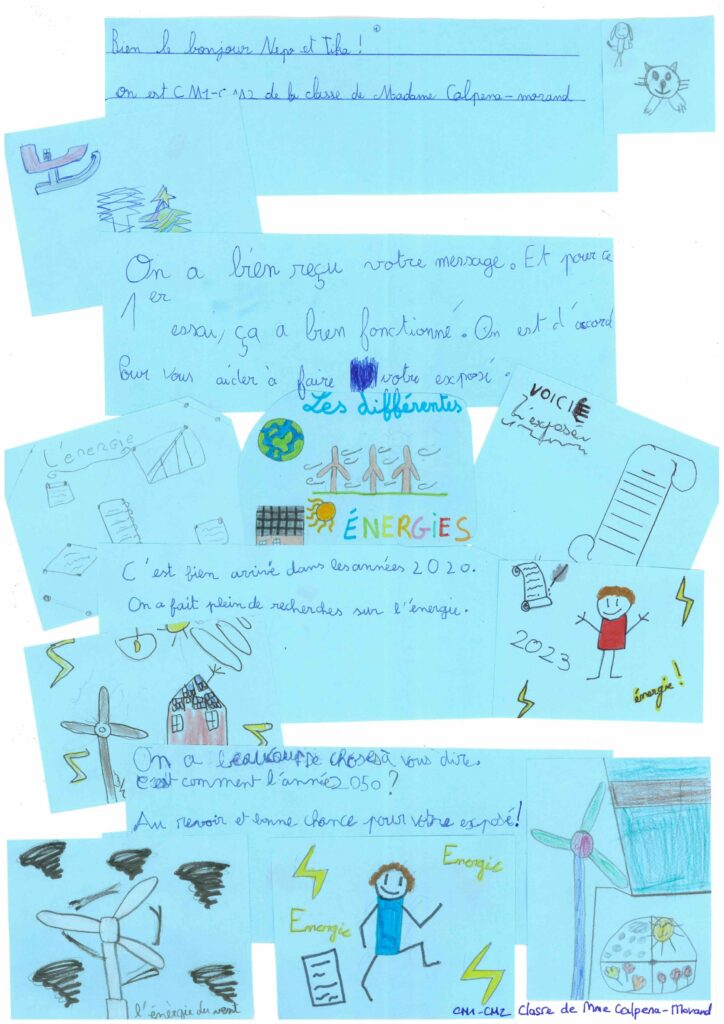 Bien le bonjour Nepo et Tika !
on est CM1-CM2 de la classe de Madame Calpena-morand
On a bien reçu votre message. Et pour ce
1er essai, ça a bien fonctionné. On est d'accord
Pour vous aider à faire votre exposé.
Les différentes
ÉNERGIES
L'énergie
VOICI
L'exposé
C'est bien arrivé dans les années 2020.
On a fait plein de recherches sur l'énergie.
2023
énergie !
On a beaucoup de choses à vous dire.
C'est comment l'année 2050 ?
Au revoir et bonne chance pour votre exposé !
Energie
Energie
l'énèrgie du vent
CM1-CM2 Classe de Mme Calpena-Morand